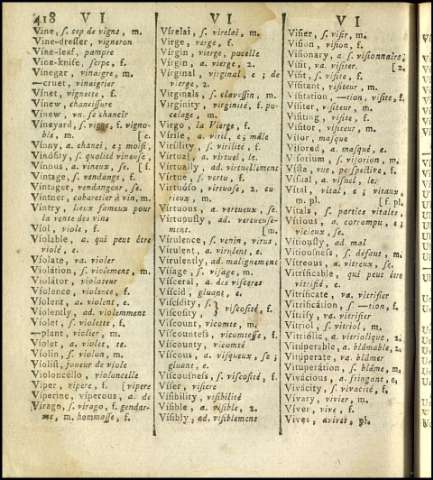 418 V I
Vine, ſ. cep de vigne, m.
Vine-dreſſer, vigneron
Vine-leaf, pampre
Vine-knife, ſerpe, f.
Vinegar, vinaigre, m.
—cruet, vinaigrier
Vinet, vignette, f.
Vinew, chanciſſure
Vinew, va. ſe chancir
Vineyard, ſ. vigne, f. vigno-
ble, m. [e.
Vinny, a. chanci, e; moiſi,
Vinoſity, ſ. qualité vineuſe,
Vinous, a. vineux, ſe. [f.
Vintage, ſ. vendange, f.
Vintager, vendangeur, ſe.
Vintner, cabaretier à vin, m.
Vintry, lieux fameux pour
la vente des vins
Viol, viole, f.
Violable, a. qui peut être
violé, e.
Violate, va. violer
Violation, ſ. violement, m.
Violator, violateur
Violence, violence, f.
Violent, a. violent, e.
Violently, ad. violemment
Violet, ſ. violette, f.
—plant, violier, m.
Violet, a. violet, te.
Violin, ſ. violon, m.
Violiſt, joueur de viole
Violoncello, violoncelle
Viper, vipere, f. [vipere
Viperine, viperous, a. de
Virago, ſ. virago, f. gendar-
me, m. hommaſſe, f.
V I
Virelai, ſ. virelai, m.
Virge, verge, f.
Virgin, vierge, pucelle
Virgin, a. vierge, 2.
Virginal, virginal, e; de
vierge, 2.
Virginals, ſ. claveſſin, m.
Virginity, virginité, f. pu-
celage, m.
Virgo, la Vierge, f.
Virile, a. viril, e; mâle
Virility, ſ. virilité, f.
Virtual, a. virtuel, le.
Virtually, ad. virtuellement
Virtue, ſ. vertu, f.
Virtuóſo, virtuoſe, 2. cu-
rieux, m.
Virtuous, a. vertueux, ſe.
Virtuouſly, ad. vertueuſe-
ment. [m.
Virulence, ſ. venin, virus,
Virulent, a. virulent, e.
Virulently, ad. malignement
Viſage, ſ. viſage, m.
Viſceral, a. des viſceres
Viſcid, gluant, e.
Viſcidity, ſ.
Viſcoſity, ſ. } viſcoſité, f.
Viſcount, vicomte, m.
Viſcounteſs, vicomteſſe, f.
Viſcounty, vicomté
Viſcous, a. viſqueux, ſe;
gluant, e.
Viſcouſneſs, ſ. viſcoſité, f.
Viſier, viſiere
Viſibility, viſibilité
Viſible, a. viſible, 2.
Viſibly, ad. viſiblement
V I
Viſier, ſ. viſir, m.
Viſion, viſion, f.
Viſionary, a. ſ. viſionnaire,
Viſit, va. viſiter. [2.
Viſit, ſ. viſite, f.
Viſitant, viſiteur, m.
Viſitation, —tion, viſite, f.
Viſiter, viſiteur, m.
Viſiting, viſite, f.
Viſitor, viſiteur, m.
Viſor, maſque
Viſored, a. maſqué, e.
Viſta, vue, perſpective, f.
Viſual, a. viſuel, le.
Vital, vital, e; vitaux,
m. pl. [f. pl.
Vitals, ſ. parties vitales,
Vitious, a. corrompu, e;
vicieux, ſe.
Vitiouſly, ad. mal
Vitiouſneſs, ſ. défaut, m.
Vitreous, a. vitreux, ſe.
Vitrificable, qui peut être
vitrifié, e.
Vitrificate, va. vitrifier
Vitrification, ſ. —tion, f.
Vitrify, va. vitrifier
Vitriol, ſ. vitriol, m.
Vitriolic, a. vitriolique, 2.
Vituperable, a. blâmable, 2.
Vituperate, va. blâmer
Vituperation, ſ. blâme, m.
Vivacious, a. fringant, e.
Vivacity, ſ. vivacité, f.
Vivary, vivier, m.
Viver, vive, f.
Vives, avives, pl.